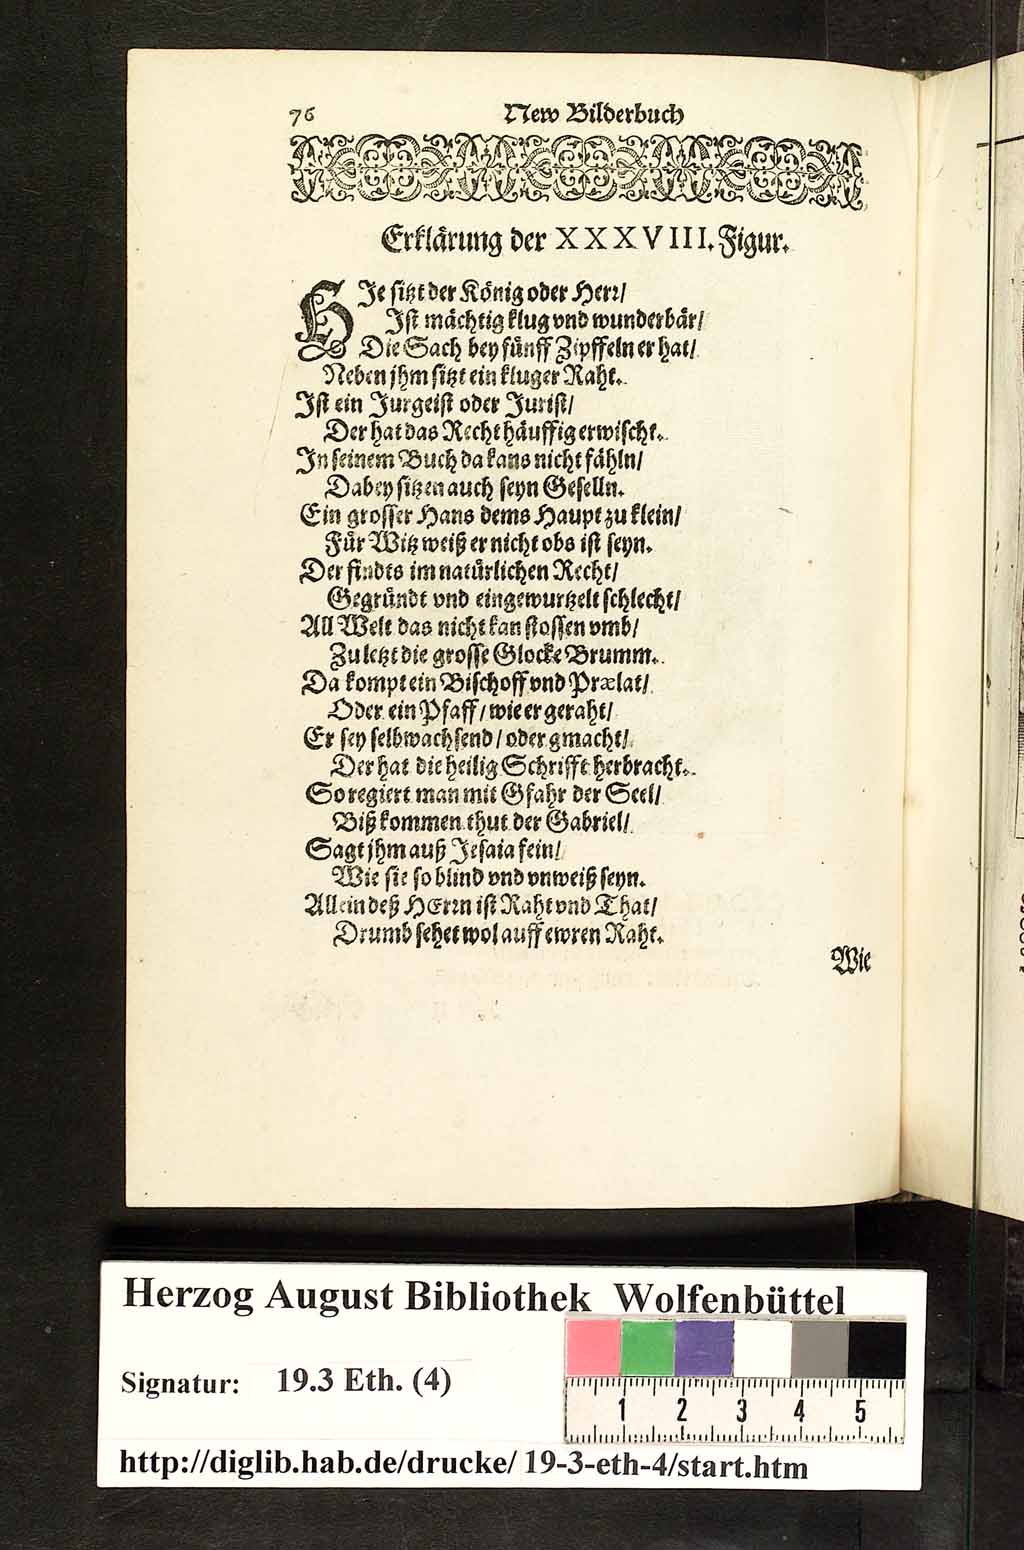 76 New Bilderbuch
Erklärung der XXXVIII. Figur.
HJe sitzt der König oder Herr/
Ist mächtig klug vnd wunderbär/
Die Sach bey fünff Zipffeln er hat/
Neben jhm sitzt ein kluger Raht.
Ist ein Jurgeist oder Jurist/
Der hat das Recht häuffig erwischt.
In seinem Buch da kans nicht fähln/
Dabey sitzen auch seyn Geselln.
Ein grosser Hans dems Haupt zu klein/
Für Witz weiß er nicht obs ist seyn.
Der findts im natürlichen Recht/
Gegründt vnd eingewurtzelt schlecht/
All Welt das nicht kan stossen vmb/
Zu letzt die grosse Glocke Brumm.
Da kompt ein Bischoff vnd Prælat/
Oder ein Pfaff/ wie er geraht/
Er sey selbwachsend/ oder gmacht/
Der hat die heilig Schrifft herbracht.
So regiert man mit Gfahr der Seel/
Biß kommen thut der Gabriel/
Sagt jhm auß Jesaia fein/
Wie sie so blind vnd vnweiß seyn.
Allein deß HErrn ist Raht vnd That/
Drumb sehet wol auff ewren Raht.
Wie
Herzog August Bibliothek Wolfenbüttel
Signatur: 19.3 Eth. (4)
1 2 3 4 5
http://diglib.hab.de/drucke/ 19-3-eth-4/start.htm